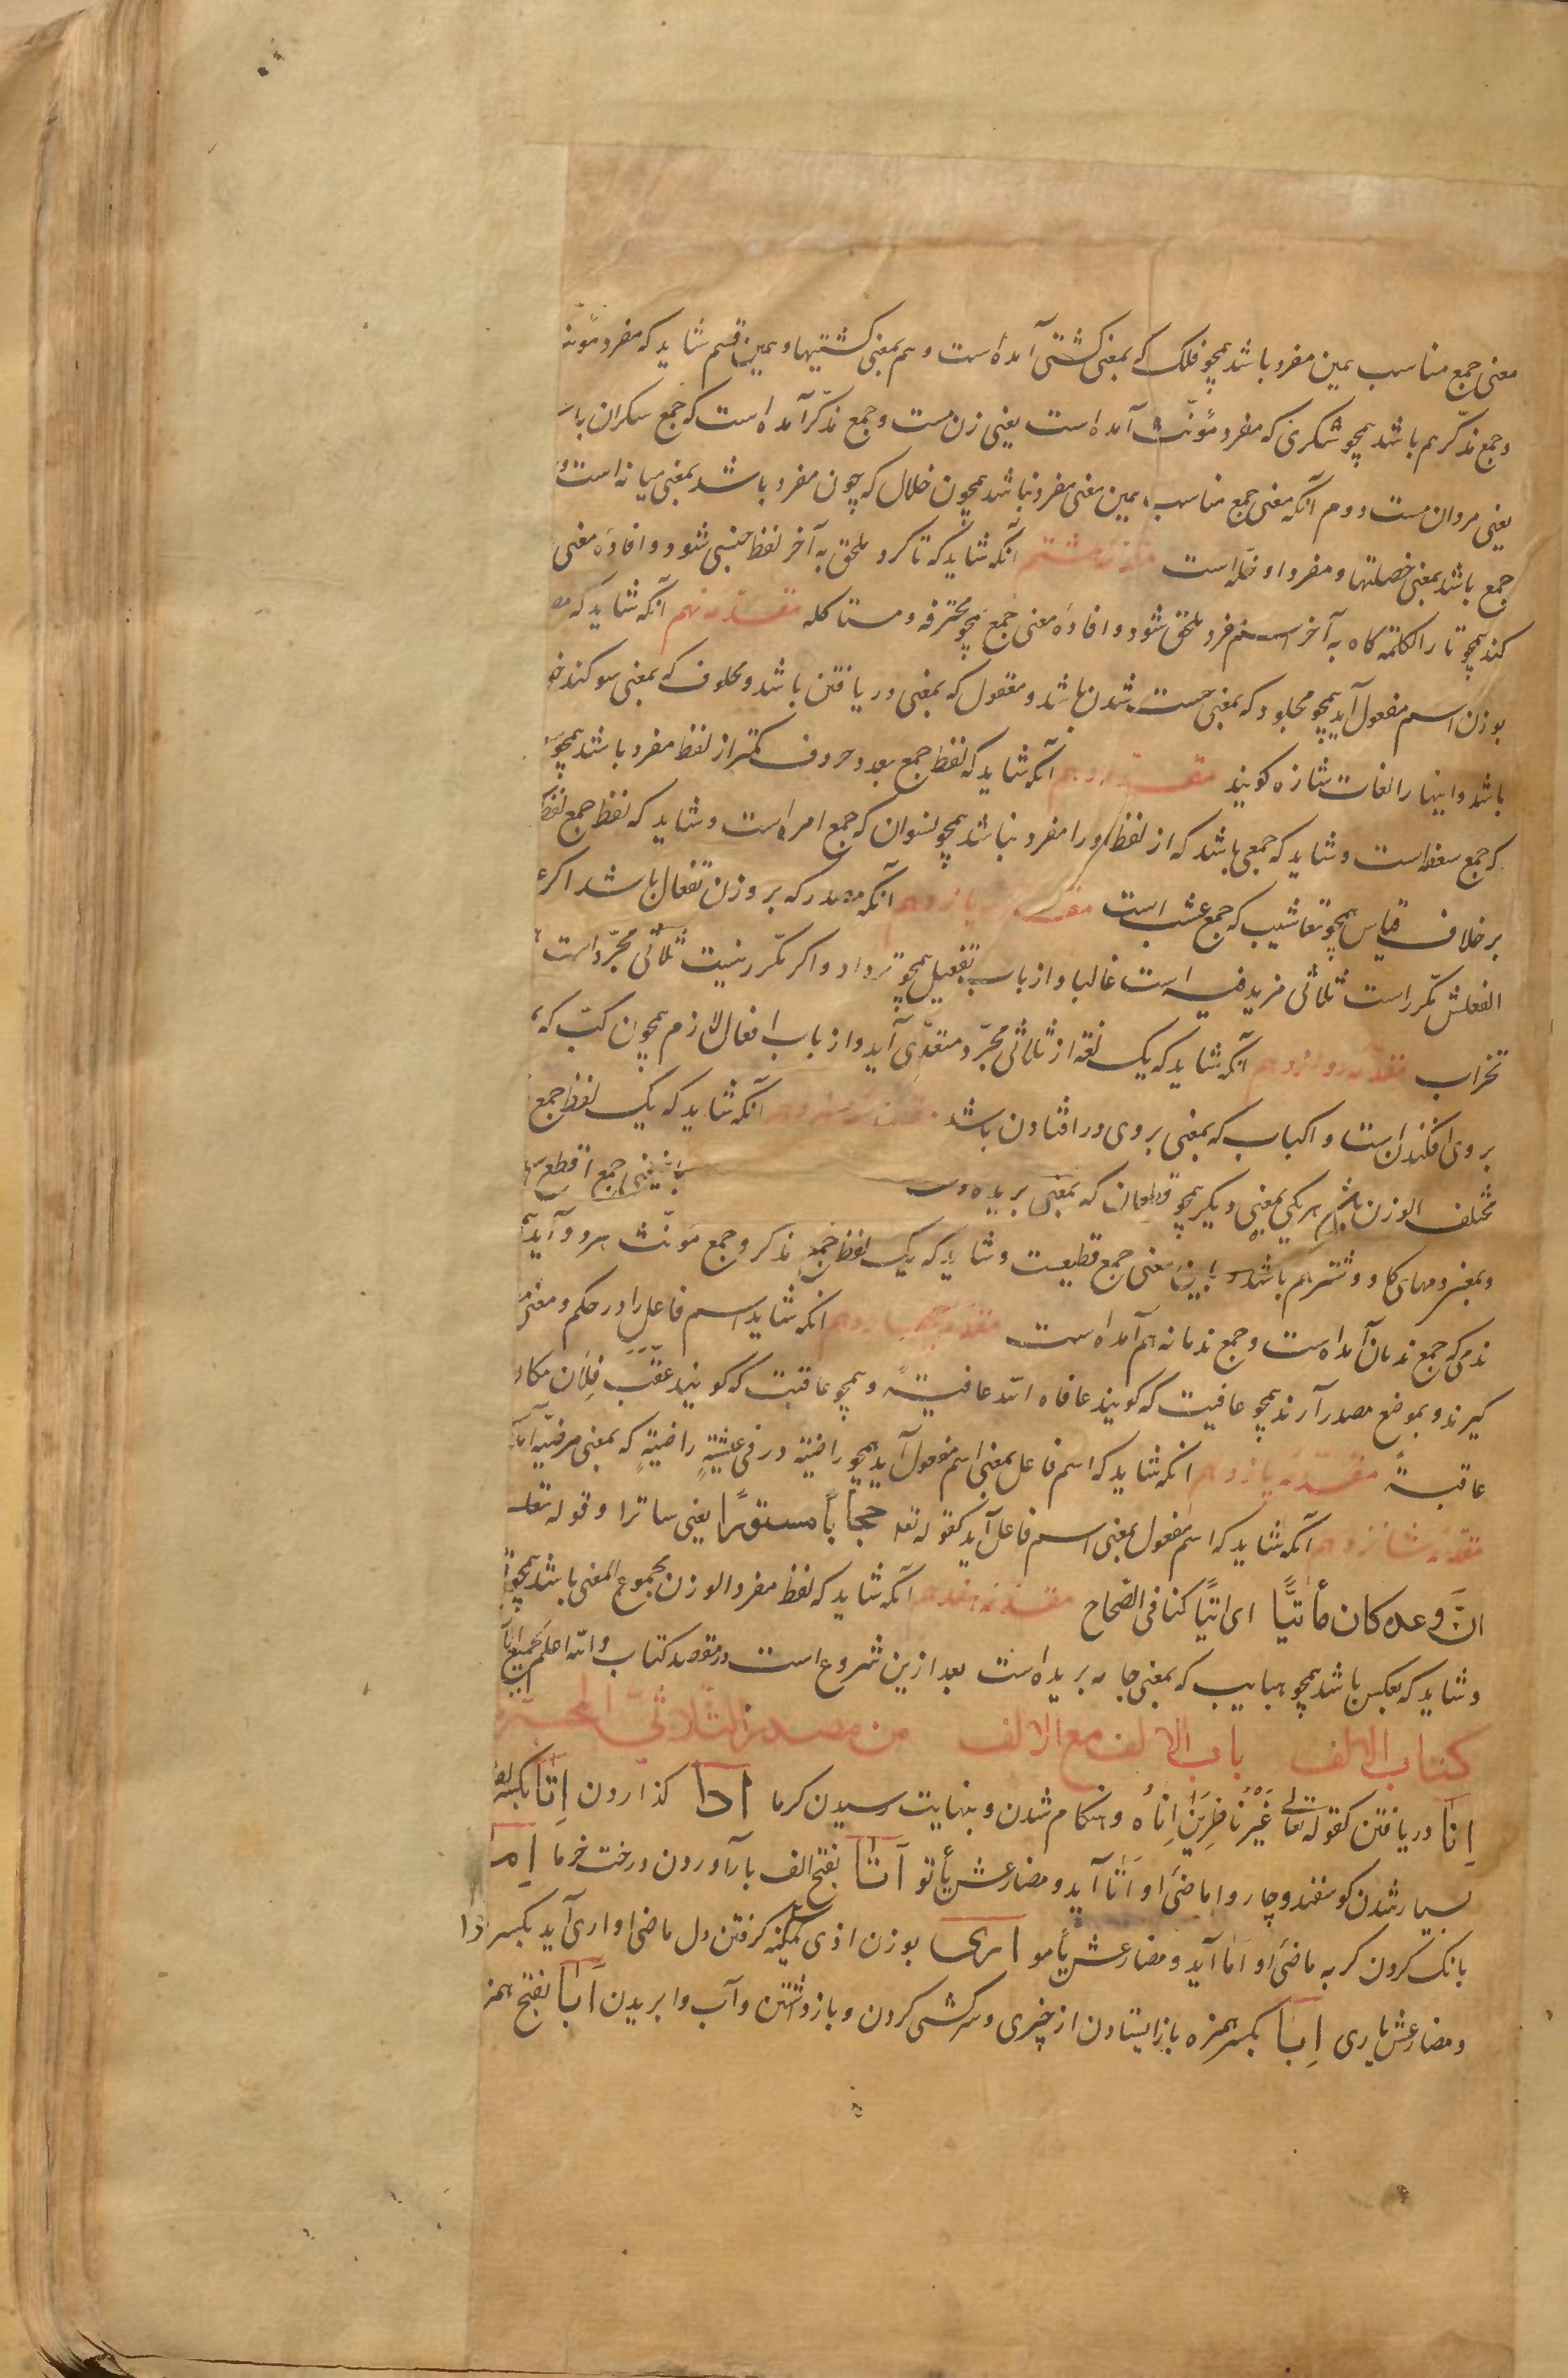 معنی جمع مناسب همین مفرد باشد همچو فلک که بمعنی کشتی آمده است و هم بمعنی کشتیها و همین قسم شاید که مفرد مؤنث
و جمع مذکّر هم باشد همچو سکری که مفرد مؤنّث آمده است یعنی زن مست و جمع مذکّر آمده است که جمع سکران باشد
یعنی مردان مست دوم آنکه معنی جمع مناسب همین معنی مفرد نباشد همچون خلال که چون مفرد باشد بمعنی میانه است و
جمع باشد بمعنی خصلتها و مفرد او خلّه است مقدمه هشتم آنکه شاید که تا گرد ملحق به آخر لفظ جنسی شود و افاده معنی
کند همچو تا را لکلمة گاه به آخر اسم مفرد ملحق شود و افاده معنی جمع همچو محترفه و مستاکله مقدّمه نهم آنکه شاید که
بوزن اسم مفعول آید همچو مجلود که بمعنی چست شدن باشد و معقول که بمعنی دریافتن باشد و محلوف که بمعنی سوکند
باشد و اینها را لغات شاذه کویند مقدمه دهم آنکه شاید که لفظ جمع بعدد حروف کمتر از لفظ مفرد باشد همچو
که جمع سعفه است و شاید که جمعی باشد که از لفظ او را مفرد نباشد همچو نسوان که جمع امراه است و شاید که لفظ جمع لفظ
بر خلاف قیاس همچو تعاشیب که جمع عشب است مقدمه یازدهم آنکه مصدر که بر وزن تفعال باشد اکر
الفعلش مکّرر است ثلاثی مزید فیه است غالبا و از باب تفعیل همچو ترداد و اکر مکّرر نیست ثلاثی مجرّد است
تخراب مقدمه دوازدهم آنکه شاید که یک لغة از ثلاثی مجرّد متعدّی آید و از باب افعال لازم همچون کبّ که
بر وی افکندن است و اکباب که بمعنی بر وی در افتادن باشد مقدمه سیزدهم آنکه شاید که یک لفظ جمع
مختلف الوزن باشد هر یکی بمعنی دیکر همچو قطعان که بمعنی بریده دست باشد یعنی جمع اقطع
و بمعنی رمهای کاو و شتر هم باشد باین معنی جمع قطیعست و شاید که یک لفظ جمع مذکر و جمع مؤنّث هر دو آید
ندمی که جمع ندمان آمده است و جمع ندمانه هم آمده است مقدمه چهاردهم آنکه شاید اسم فاعل را در حکم و معنی
کیرند و بموضع مصدر آرند همچو عافیت که کویند عافاه الله عافیةً و همچو عاقبت که کویند عقّب فلان مکان
عاقبةً مقدّمه پانزدهم آنکه شاید که اسم فاعل بمعنی اسم مفعول آید همچو راضیة در فی عیشةٍ راضیةٍ که بمعنی مرضیّه
مقدّمه شانزدهم آنکه شاید که اسم مفعول بمعنی اسم فاعل آید کقوله تعه حجابًا مستورًا یعنی ساترا و قوله تعه
انّ وعده کان مأتیًّا ای اتیًا کذا فی الصّحاح مقدمه هفدهم آنکه شاید که لفظ مفرد الوزن مجموع المعنی باشد همچو
و شاید که بعکس باشد همچو هبابیب که بمعنی جامه بریده است بعد ازین شروع است در مقصد کتاب والله اعلم
کتاب الالف باب الالف مع الالف من مصدر الثلاثی المجرّد
اِنَا دریافتن کقوله تعالی غَیْرَ نَاظِرِینَ اِنَاهُ و هنکام شدن و بنهایت رسیدن کرما ادا کذاردن اِتَا بکسر
بسیار شدن کوسفند و چاروا ماضی او اَتَا آید و مضارعش یأتو اَتَا بفتح الف بار آوردن درخت خرما اِما
بانک کردن کربه ماضی او اَمَا آید و مضارعش یأمو اری بوزن اذی کینه کرفتن دل ماضی او اری آید بکسر را
و مضارعش یاری اِبَا بکسر همزه باز ایستادن از چیزی و سرکشی کردن و باز داشتن و آب وا بریدن اَبَا بفتح همزه